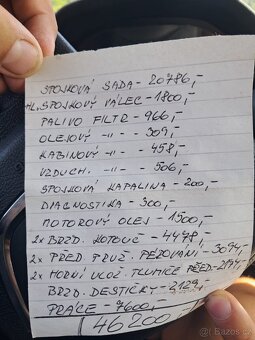 SPOJKOVÁ SADA - 20786,-
HL. SPOJKOVÝ VÁLEC - 1800,-
PALIVO FILTR - 966,-
OLEJOVÝ -"- - 309,-
KABINOVÝ -"- - 458,-
VZDUCH. -"- - 506,-
SPOJKOVÁ KAPALINA - 200,-
DIAGNOSTIKA - 300,-
MOTOROVÝ OLEJ - 1500,-
2x BRZD. KOTOUČ - 4498,-
2x PŘED. PRUŽ. PÉROVÁNÍ - 3094,-
2x HORNÍ ULOŽ. TLUMIČE PŘED -
BRZD. DESTIČKY - 2129,-
PRÁCE - 7600,-
46200